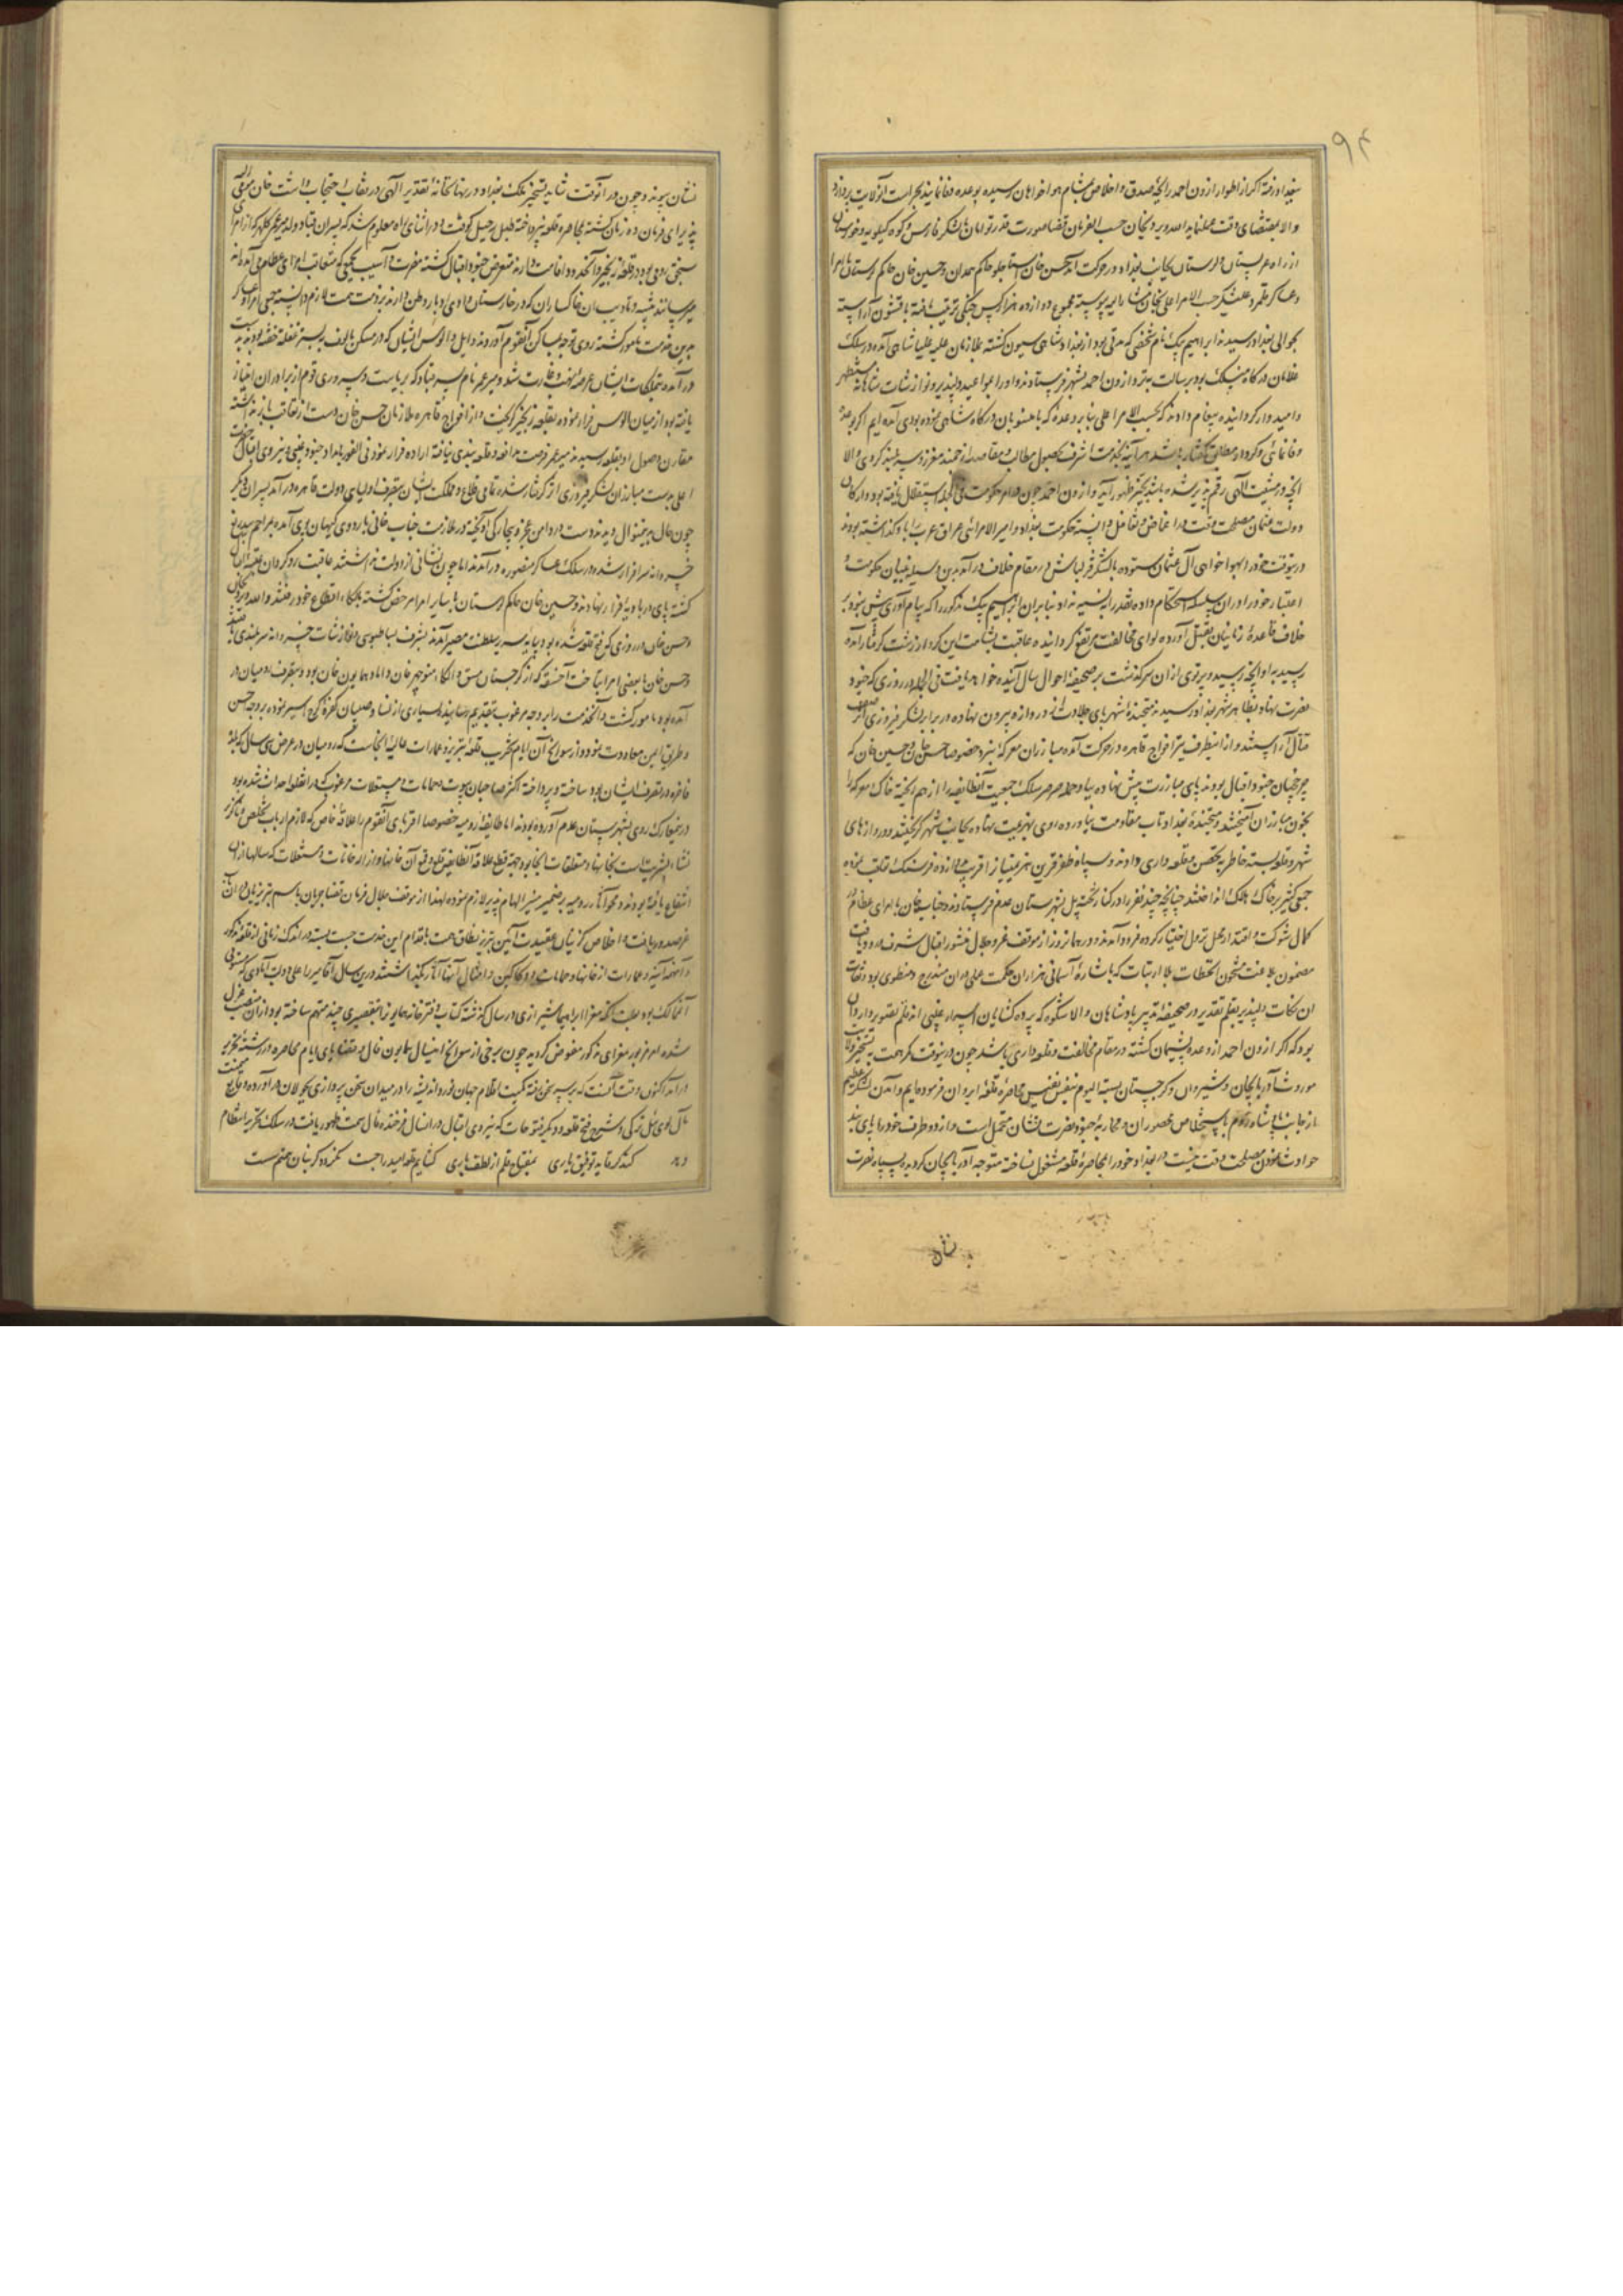 ۹۴
بغداد رفته اکر از اطوار ازون احمد رایحهٔ صدق و اخلاص بمشام هواخواهان رسیده بوعده وفا نماید بحراست آنولایت پردازد
والا بمقتضای وقت عمل نماید الله ویردیخان حسب الفرمان قضا صورت قدر توامان با لشکر فارس و کوه کیلویه و خوزستان
از راه عربستان و لرستان بجانب بغداد در حرکت آمد حسن خان استاجلو حاکم همدان و حسین خان حاکم لرستان با امرا
و عساکر قلمرو علیشکر حسب الامر اعلی بخان مشار الیه پیوسته مجموع دوازده هزار کس جنکی ترتیب یافته با قشون آراسته
بحوالی بغداد رسیدند ابراهیم بیک نام شخصی که مدتی بود از بغداد شاهی سیون کشته بملازمان علیه علیا شاهی آمده در سلک
غلامان درکاه منسلک بود برسالت نزد ازون احمد بشهر فرستادند و او را بمواعید دلپذیر و نوازشات شاهانه مستظهر
و امیدوار کردانیده پیغام دادند که بحسب الامر اعلی بنابر وعدهٔ که با منسوبان درکاه شاهی نموده بودی آمده ایم اکر بوعده
وفا نمائی و کردار مطابق کفتار باشد هر آینه بخدمت اشرف بحصول مطالب و مقاصد ارجمند معزز و سربلند کردی والا
آنچه در مشیت الهی رقم پذیر شده باشد بحیز ظهور آید و ازون احمد چون در امر حکومت فی الجمله استقلال یافته بود و ارکان
دولت عثمان مصلحت وقت در اغماض و تغافل دانسته حکومت بغداد و امیر الامرائی عراق عرب را باو کذاشته بودند
درینوقت خود را بهواخواهی آل عثمان ستوده با لشکر قزلباش در مقام خلاف در آمد بدین وسیله بنیان حکومت و
اعتبار خود را در آن سلسله استحکام داده نقد را به نسیه نداد بنابران ابراهیم بیک مذکور را که پیام آوری بیش نبود بر
خلاف قاعدهٔ زمانیان بقتل آورده لوای مخالفت مرتفع کردانیده عاقبت بشامت این کردار زشت کرفتار آمده
رسید باو آنچه رسید و پرتوی از ان سرکذشت بر صحیفهٔ احوال سال آینده خواهد یافت فی الجمله در روزی که جنود
نصرت بنیاد بظاهر شهر بغداد رسیدند متجندهٔ شهر پای جلادت از دروازه بیرون نهاده در برابر لشکر فیروزی اثر صف
قتال آراستند و از اینطرف نیز افواج قاهره در حرکت آمده مبارزان معرکهٔ نبرد خصوصا حسن خان و حسین خان که
چرخچیان جنود اقبال بودند پای مبارزت پیش نهاده بباد حملهٔ صرصر سلک جمعیت آنطایفه را از هم ریخته خاک معرکه را
بخون مبارزان آمیختند و متجندهٔ بغداد تاب مقاومت نیاورده روی بهزیمت نهاده بجانب شهر کریختند و دروازهای
شهر و قلعه بسته خاطر بتحصن و قلعه داری دادند و سپاه ظفر قرین هزیمتیان را قریب دو فرسنک تعاقب نموده
جمعی کثیر بر خاک هلاک انداختند چنانچه چند نفر را در کنار تخته پل بشهرستان عدم فرستادند و جناب خان با امرای عظام در
کمال شوکت و اقتدار محل نزول اختیار کرده فرود آمدند و در همانروز از موقف عز و جلال منشور اقبال شرف ورود یافت
مضمون بلاغت مشحون آنخطاب بلا ارتیاب که باشارهٔ آسمانی هزاران حکمت عملی در ان مندرج و منطوی بود و نقاب
ان نکات دلپذیر بقلم تقدیر در صحیفهٔ تدبیر پادشاهان والا شکوه که پرده کشایان اسرار غیبی اند رقم تصویر دارد آن
بود که اکر ازون احمد از وعده پشیمان کشته در مقام مخالفت و قلعه داری باشد چون درینوقت که همت به تسخیر ولایت
موروث آذربایجان و شیروان و کرجستان بسته الیوم بنفس نفیس محاصرهٔ قلعهٔ ایروان فرموده ایم و آمدن لشکر عظیم
از جانب پادشاه روم باستخلاص محصوران و محاربهٔ جنود نصرت نشان محتمل است و از دو طرف خود را پای بند
حوادث نمودن مصلحت وقت نیست در بغداد خود را بمحاصرهٔ قلعه مشغول نساخته متوجه آذربایجان کردیده بسپاه نصرت
نشان
نشان پیوندد و چون در آنوقت شاهد تسخیر ملک بغداد در نهانخانهٔ تقدیر الهی در نقاب احتجاب داشت خان موفی الیه
پذیرای فرمان ده زمان کشته بمحاصره و قلعه نپرداخته طبل رحیل کوفت و در اثنای راه معلوم شد که پسران قباد ولد میر عمر کلهر که از امرای
سنجق رومی بود در قلعهٔ زنجیر و آنحدود اقامت دارند متعرض جنود اقبال کشته مضرت و آسیب بجمعی که متعاقب امرای عظام می آمده اند
میرسانند تنبیه و تادیب ان خاکساران که در خارستان وادی ادبار وطن دارند بر ذمت همت لازم دانسته جمعی امرا و عساکر
بدین خدمت مامور کشته روی توجه بمساکن آنقوم آوردند و ایل و الوس ایشان که در مسکن مالوف بر بستر غفلت خفته بودند بدست
در آمده تملکات ایشان عرضهٔ نهب و غارت شد و میر عمر نام پسر قباد که بریاست و سروری قوم از برادران امتیاز
یافته بود از میان الوس فرار نموده بقلعهٔ زنجیر کریخت و از افواج قاهره ملازمان حسن خان دست از تعاقب باز نداشته
مقارن وصول او بقلعه رسیدند میر عمر فرصت مدافعه و قلعه بندی نیافته اراده فرار نمود فی الفور بامداد جنود غیبی و نیروی اقبال
اعلی بدست مبارزان لشکر فیروزی اثر کرفتار شده تمامی قلاع و مملکت ایشان بتصرف اولیای دولت قاهره در آمد پسران دیکر
چون حال بدینمنوال دیدند دست در دامن عجز و بیچارکی آویخته در ملازمت جناب خانی باردوی کیهان پوی آمده بمراحم بیدریغ
خسروانه سرافراز شده در سلک عساکر منصوره در آمدند اما چون نشانی از دولت نداشتند عاقبت روکردان عتبه اقبال
کشته پای در بادیهٔ فرار نهادند و حسین خان حاکم لرستان با سایر امرا مرخص کشته بالکاء و اقطاع خود رفتند و الله ویردیخان
و حسن خان در روزی که فتح قلعه شده بود بپایه سریر سلطنت مصیر آمدند بشرف بساطبوسی و نوازشات خسروانه سربلندی یافتند
و حسن خان با بعضی امرا بتاخت آخسقه که از کرجستان مسق و الکاء منوچهر خان و داماد همایون خان بود و بتصرف رومیان در
آمده بود مامور کشت و آنخدمت را بر وجه مرغوب بتقدیم رسانیده بسیاری از نسا و صبیان کفرهٔ کرج اسیر نموده بر وجه حسن
و طریق ایمن معاودت نمود و از سوانح آن ایام تخریب قلعهٔ تبریز و عمارات عالیهٔ انجاست که رومیان در عرض سی سال که بلدهٔ
فاخره در تصرف ایشان بود ساخته و پرداخته اکثر صاحبان بیوت و حمامات و مستغلات مرغوب که در انقلعه احداث شده بود
در نهمعارک روی بشهرستان عدم آورده بودند اما طایفهٔ رومیه خصوصا اقربای آنقوم را علاقهٔ خاص که لازم ارباب تخلص و ناکزیر
نشاء بشریت است بخانها و متعلقات آنجا بود جهة قطع علاقه آنطایفه قلع و قمع آن خانها و ازاله خانات و مستغلات که سالها از ان
انتفاع یافته بودند و محو آثار رومیه بر ضمیر منیر الهام پذیر لازم نموده لهذا از موقف جلال فرمان قضا جریان باسم تبریزیان که در ان
عرصه در یافت و اخلاص کزینان عقیدت آیین تبریز نطاق همت باقدام این خدمت چست بسته در اندک زمانی از قلعهٔ مذکور
و آنهمه ابنیه و عمارات از خانها و حمامات و دکاکین و امثال آنها آثار نکذاشتند درین سال آقا میرزا علی دولت آبادی که مستوفی
آنممالک بود بعلت آنکه میرزا ابراهیم شیرازی در سال کذشته کتاب دفترخانه همایون را بتقصیری چند متهم ساخته بود از ان منصب عزل
شده امر مزبور بمیرزای مذکور مفوض کردید چون برخی از سوانح امتیال همایون فال و قضایای ایام محاصره در رشتهٔ تحریر
در آمد اکنون وقت آنست که بر سر سخن رفته کمیت اقلام جهان نورد اندیشه را در میدان سخن پردازی بجولان در آورده وقایع میمنت
مآل لوی ئیل ترکی و شرح فتح قلعه و دیکر فتوحات که بنیروی اقبال در انسال فرخنده فال سمت ظهور یافت در سلک تحریر انتظام
دهد کنند کر مایه توفیق یاری بمفتاح قلم از لطف باری کشایم قلعهٔ امید را چست نکردد کر بنان همتم سست